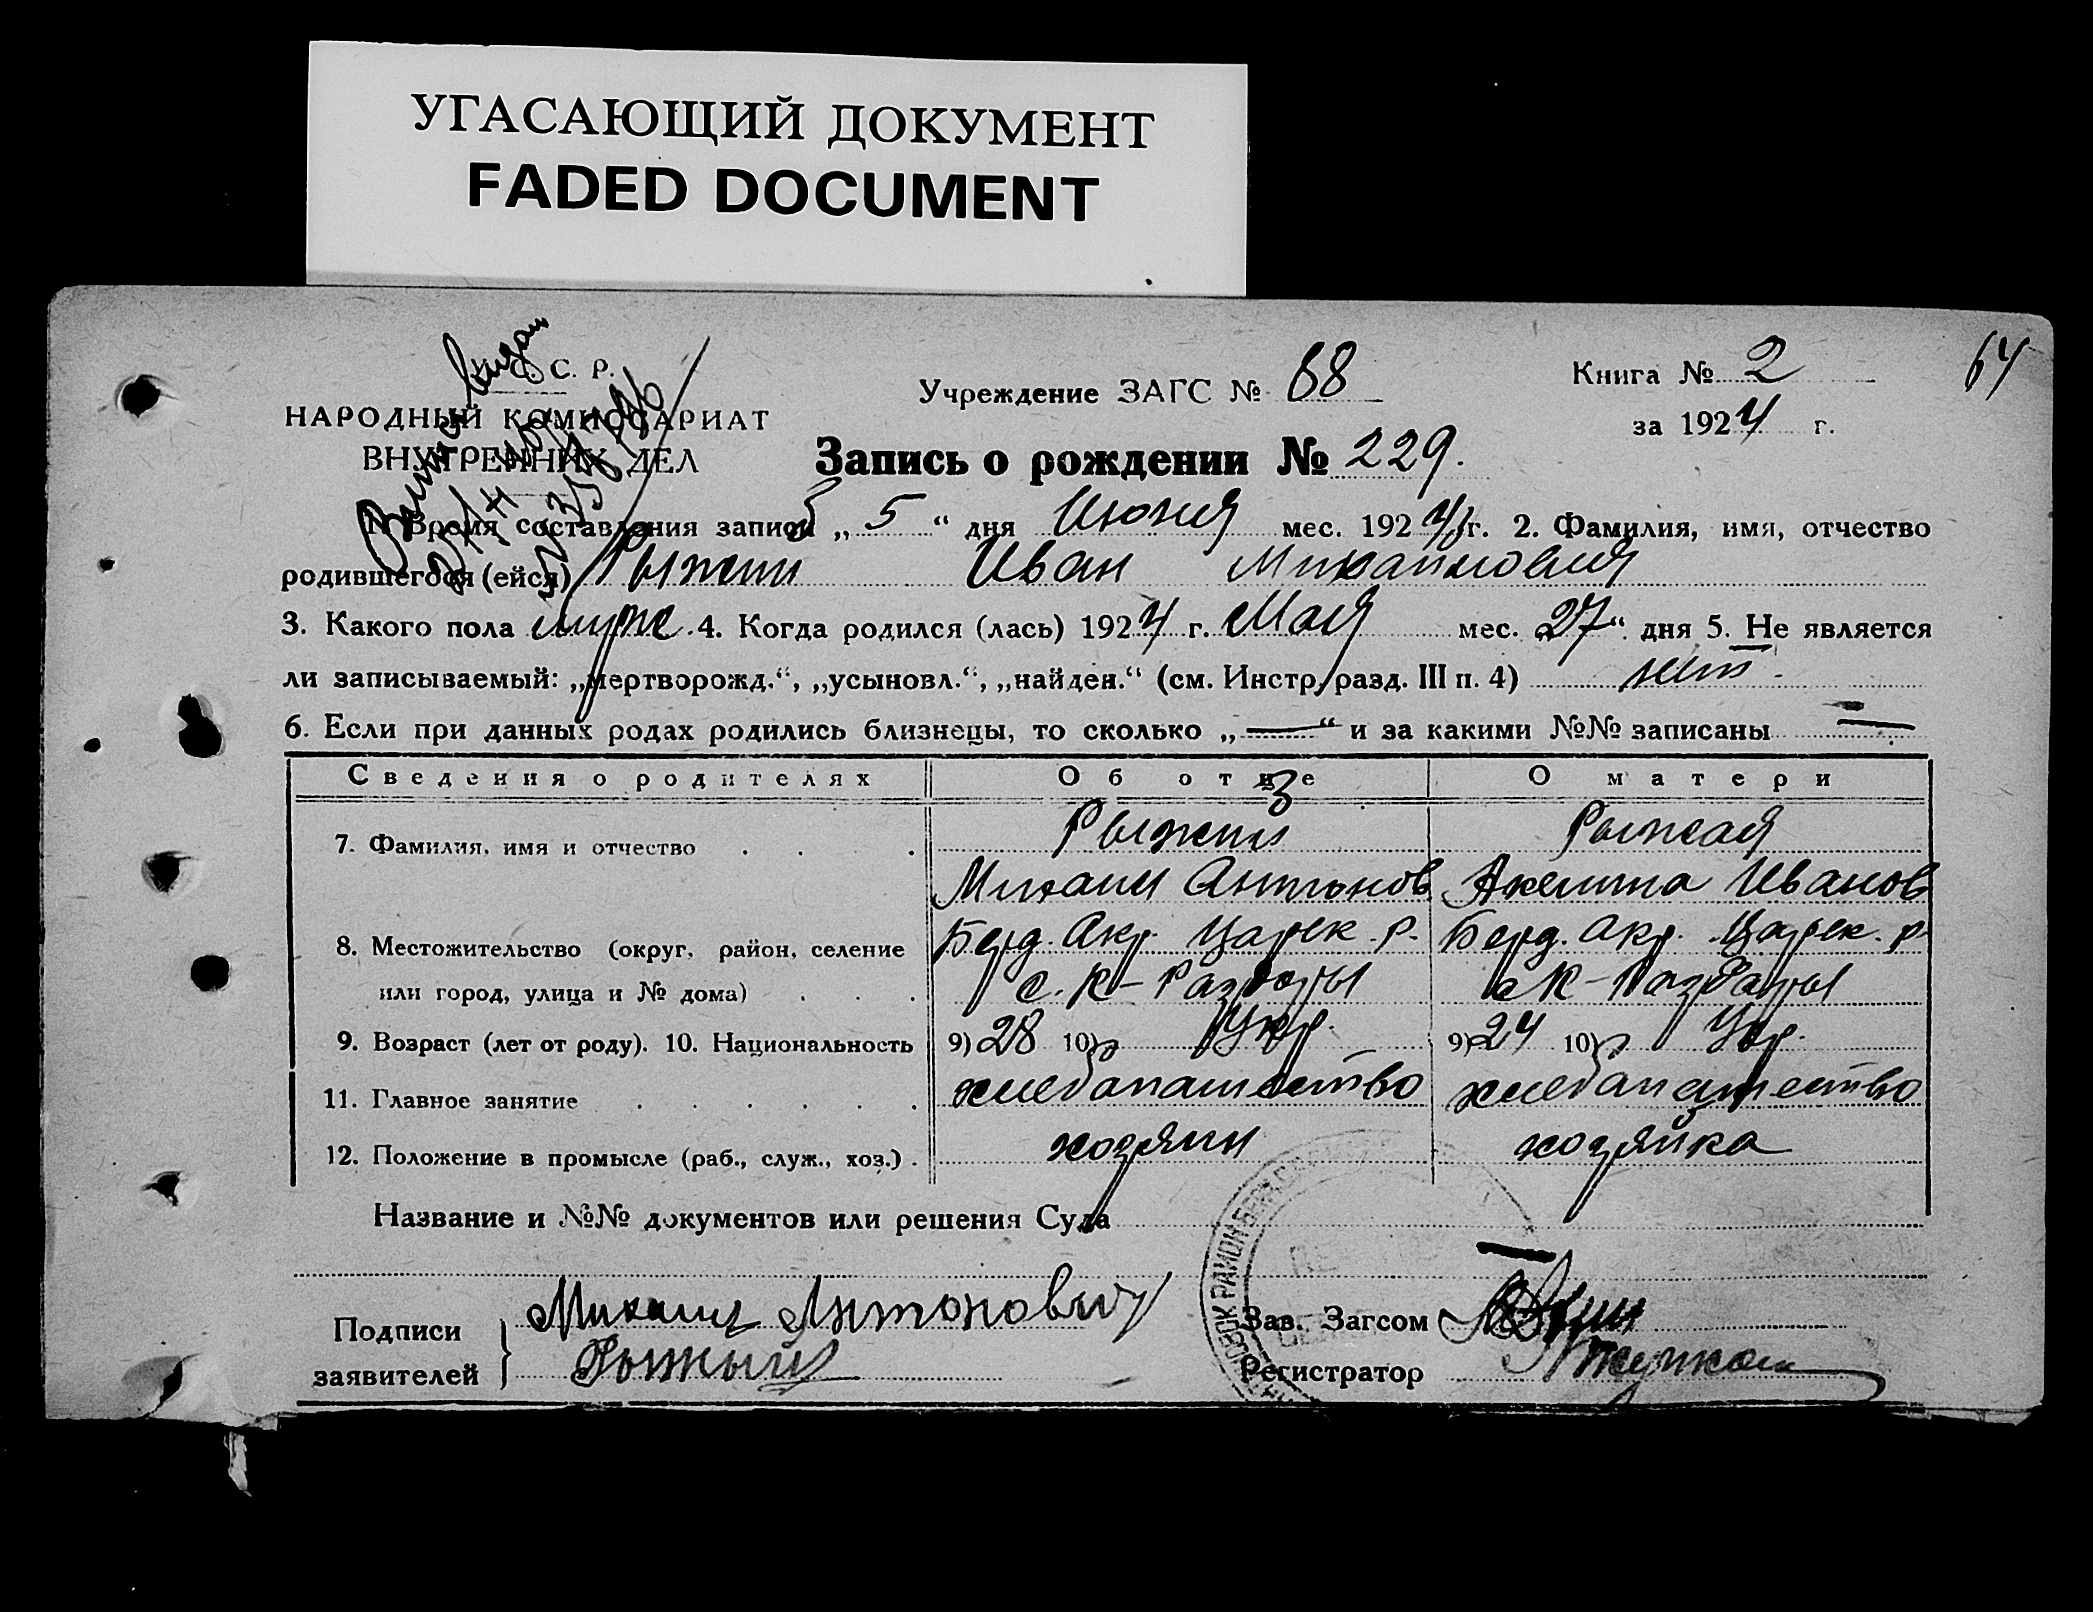 УГАСАЮЩИЙ ДОКУМЕНТ
FADED DOCUMENT
С. С. Р.
НАРОДНЫЙ КОМИССАРИАТ
ВНУТРЕННИХ ДЕЛ
Учреждение ЗАГС № 68
Книга № 2
64
за 1924 г.
Запись о рождении № 229.
1. Время составления записи „5“ дня Июня мес. 1924 г. 2. Фамилия, имя, отчество
родившегося (ейся) Рыжий Иван Михайлович
3. Какого пола муж. 4. Когда родился (лась) 1924 г. Мая мес. „27“ дня 5. Не является
ли записываемый: „мертворожд.“, „усыновл.“, „найден.“ (см. Инстр. разд. III п. 4) нет.
6. Если при данных родах родились близнецы, то сколько „—“ и за какими №№ записаны —
Сведения о родителях Об отце О матери
3
7. Фамилия, имя и отчество Рыжий Рыжая
Михаил Антонов Акелина Иванов
8. Местожительство (округ, район, селение Берд. Окр. Царек. р. Берд. Окр. Царек. р.
или город, улица и № дома) с. К-Раздоры с К-Раздоры
9. Возраст (лет от роду). 10. Национальность 9) 28 10) Укр. 9) 24 10) Укр.
11. Главное занятие хлебопашество хлебопашество
12. Положение в промысле (раб., служ., хоз.) хозяин хозяйка
Название и №№ документов или решения Суда
Подписи заявителей Михаил Антонович
Рыжый
Зав. Загсом
Регистратор